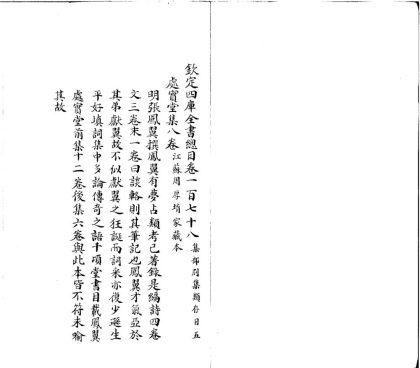 欽定四庫全書總目卷一百七十八 集部別集類存目五
處實堂集八卷 江蘇周厚堉家藏本
明張鳳翼撰鳳翼有夢占類考已著錄是編詩四卷
文三卷末一卷曰談輅則其筆記也鳳翼才氣亞於
其弟獻翼故不似獻翼之狂誕而詞采亦復少遜生
平好填詞集中多論傳奇之語千項堂書目載鳳翼
處實堂前集十二卷後集六卷與此本皆不符未喻
其故